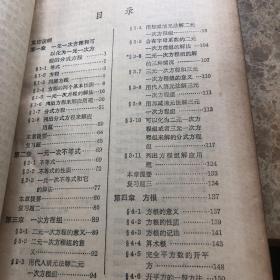 目 录
重版说明
第一章 一元一次方程和可
以化为一元一次方
程的分式方程
§1·1 等式
§1·2 方程
§1·3 同解方程
§1·4 方程的两个基本性质
§1·5 一元一次方程的解法
§1·6 列出方程来解应用题
§1·7 分式方程
§1·8 列出分式方程来解应
用题
本章提要
复习题一
第二章 一元一次不等式
§2·1 不等式
§2·2 不等式的性质
§2·3 一元一次不等式和它
的解法
本章提要 84
复习题二
第三章 一次方程组 89
§3·1 二元一次方程 89
§3·2 二元一次方程组的意
义
§3·3 用代入消元法解二元
一次方程组
§3·4 用加减消元法解二元
一次方程组
§3·5 含有字母系数的二元
一次方程组的解法
§3·6 二元一次方程组的解
的三种情况
§3·7 三元一次方程和三元
一次方程组的意义
§3·8 用代入消元法解三元
一次方程组
§3·9 用加减消元法解三元
一次方程组
§3·10 可以化为二元一次方
程组或者三元一次方
程组的分式方程组
§3·11 列出方程组解应用
题
本章提要 137
复习题三
第四章 方根
§4·1 方根的意义
§4·2 方根的性质
§4·3 方根的记法
§4·4 算术根
§4·5 完全平方数的开平
方 148
§4·6 开平方的一般方法